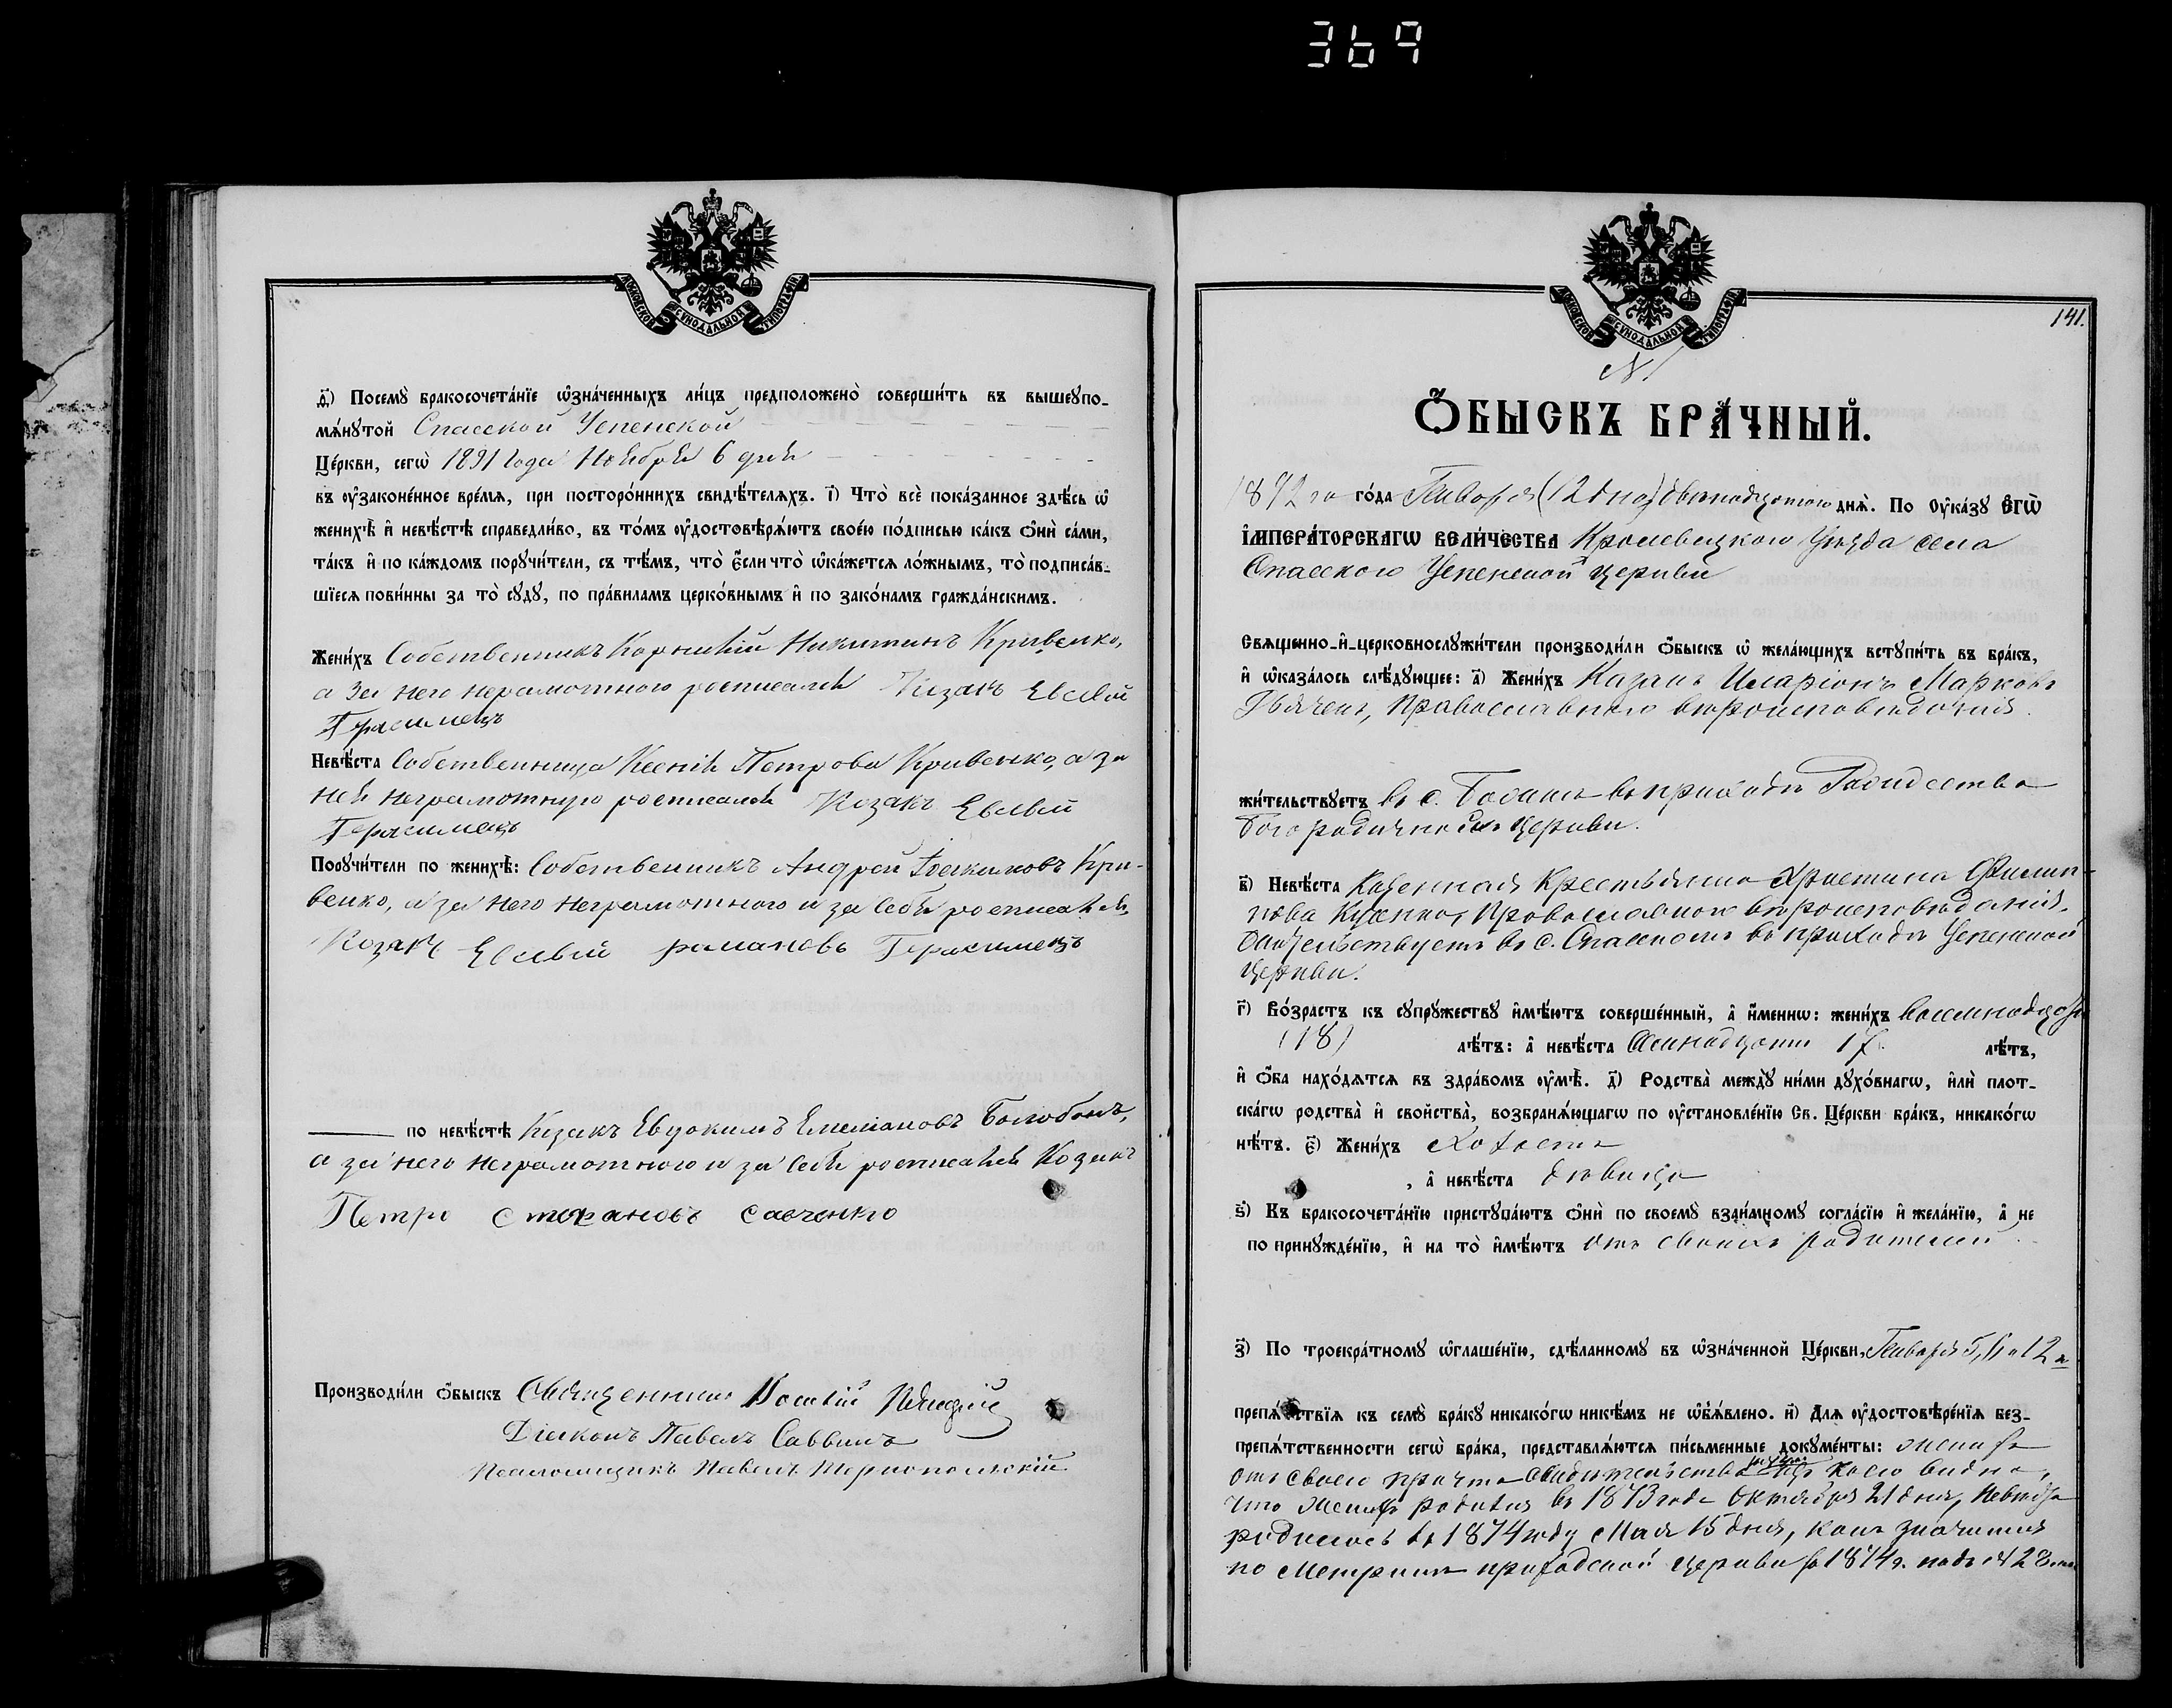 369
МОСКОВСКОЙ СУНОДАЛЬНОЙ ТИПОГРАФІИ
д҃і) Посемꙋ̀ бракосочета́нїе ѡ҆зна́ченныхъ ли́цъ предположено̀ соверши́ть въ вышеꙋпо-
мѧ́нꙋтой Спасской Успенской
Це́ркви, сегѡ̀ 1891 года Ноября 6 дня
въ ᲂу҆законе́нное вре́мѧ, при посторо́ннихъ свидѣ́телѧхъ. і҃) Что̀ всѐ пока́занное здѣ́сь ѡ҆
женихѣ̀ и҆ невѣ́стѣ справедли́во, въ то́мъ ᲂу҆достовѣрѧ́ютъ свое́ю по́дписью ка́къ ѻ҆нѝ са́ми,
та́къ и҆ по ка́ждомъ порꙋчи́тели, съ тѣ́мъ, что̀ є҆́сли что̀ ѡ҆ка́жетсѧ ло́жнымъ, то̀ подписа́в-
шїесѧ пови́нны за то̀ сꙋдꙋ̀, по пра́виламъ церко́внымъ и҆ по зако́намъ гражда́нскимъ.
Жени́хъ Собственникъ Корнилій Никитинъ Кривенко,
а за него неграмотного росписался Козакъ Евсевій
Герасимецъ
Невѣ́ста Собственница Ксенія Петрова Кривенко, а за
нея неграмотную росписался Козакъ Евсевій
Герасимецъ
Порꙋчи́тели по женихѣ̀: Собственникъ Андрей Іоакимовъ Кри-
венко, а за него неграмотного и за себя росписался
Козакъ Евсевій романовъ Герасимецъ
по невѣ́стѣ Козакъ Евдокимъ Емеліановъ
а за него неграмотного и за себя росписался Козакъ
Петро Стефановъ Савченко
Производи́ли ѻ҆́быскъ Священникъ
Діаконъ Павелъ Саввинъ
Псаломщикъ Павелъ Тернопольскій
МОСКОВСКОЙ СУНОДАЛЬНОЙ ТИПОГРАФІИ
141.
№ 1
Ѻ҆́БЫСКЪ БРА́ЧНЫЙ.
1892 го го́да Января (12 дня) двенадцатого днѧ̀. По ᲂу҆ка́зꙋ Є҆ГѠ̀
І҆МПЕРА́ТОРСКАГѠ ВЕЛИ́ЧЕСТВА Кролевецкого Уѣзда села
Спасского Успенской церкви
Свѧщенно-и҆-церковнослꙋжи́тели производи́ли ѻ҆́быскъ ѡ҆ жела́ющихъ встꙋпи́ть въ бра́къ,
и҆ ѡ҆каза́лось слѣ́дꙋющее: а҃) Жени́хъ Казакъ Иларіонъ Марковъ
Православного вѣроисповѣданія.
жи́тельствꙋетъ въ с. въ приходѣ Рождества
Богородичной церкви.
в҃) Невѣ́ста Казенная Крестьянка Христина Филип-
пова Православного вѣроисповѣданія,
жительствуетъ въ с. Спасскомъ въ приходѣ Успенской
церкви.
г҃) Во́зрастъ къ сꙋпрꙋ́жествꙋ и҆мѣ́ютъ соверше́нный, а҆ и҆́меннѡ: жени́хъ восемнадцать
(18) лѣ́тъ: а҆ невѣ́ста Семнадцати 17 лѣ́тъ,
и҆ ѻ҆́ба нахо́дѧтсѧ въ здра́вомъ ᲂу҆мѣ̀. д҃) Родства̀ междꙋ̀ ни́ми дꙋхо́внагѡ, и҆лѝ плот-
ска́гѡ родства̀ и҆ свойства̀, возбранѧ́ющагѡ по ᲂу҆становле́нїю Св. Це́ркви бра́къ, никако́гѡ
нѣ́тъ. є҃) Жени́хъ холостъ
, а҆ невѣ́ста дѣвица
ѕ҃) Къ бракосочета́нїю пристꙋпа́ютъ ѻ҆нѝ по своемꙋ̀ взаи́мномꙋ согла́сїю и҆ жела́нїю, а҆ не
по принꙋжде́нїю, и҆ на то̀ и҆мѣ́ютъ отъ своихъ родителей
з҃) По троекра́тномꙋ ѡ҆глаше́нїю, сдѣ́ланномꙋ въ ѡ҆зна́ченной Це́ркви, Января 5, 6 и 12 го
препѧ́тствїѧ къ семꙋ̀ бра́кꙋ никако́гѡ никѣ́мъ не ѡ҆б̾ѧ́влено. и҃) Длѧ ᲂу҆достовѣре́нїѧ без-
препѧ́тственности сегѡ̀ бра́ка, представлѧ́ютсѧ пи́сьменные докꙋме́нты: жениха
отъ своего причта свидетельство изъ коего видно,
что женихъ родился въ 1873 годе Октября 21 дня, Невѣста
родилась въ 1874 году Мая 15 дня, какъ значится
по Метрики приходской церкви за 1874 г. подъ № 28